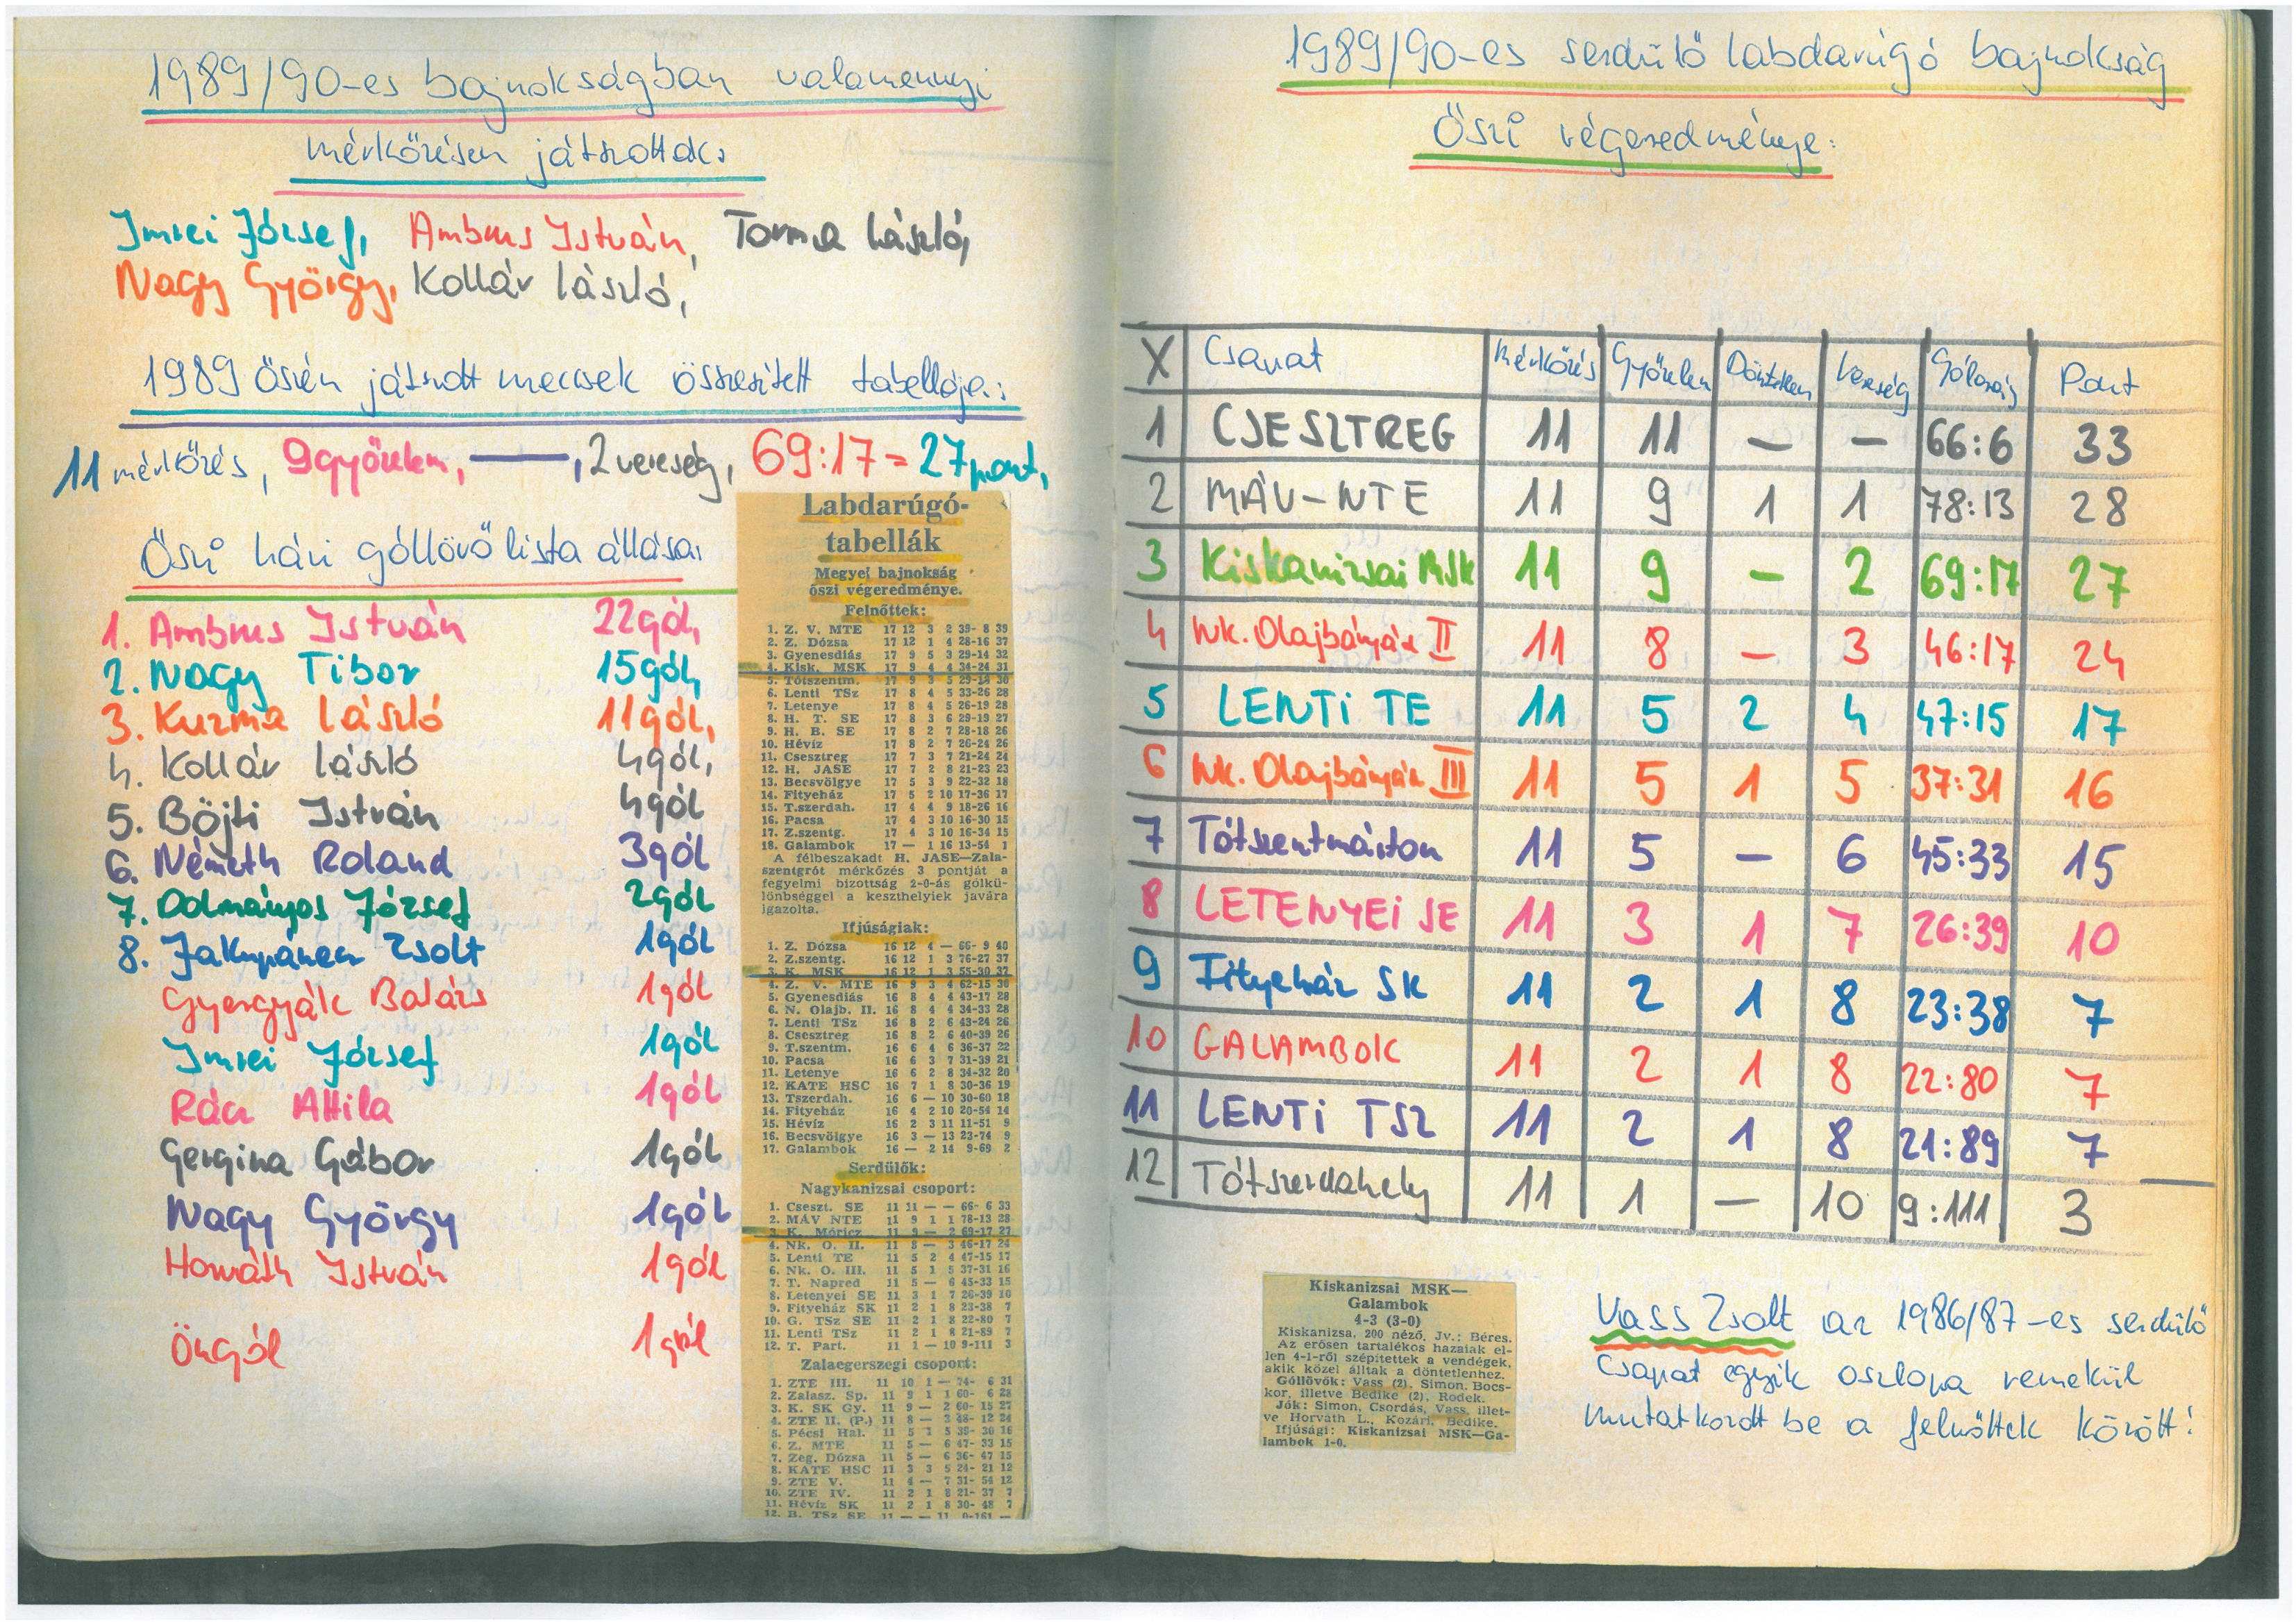 1989/90-es bajnokságban valamennyi
mérkőzésen játszottak:
Imrei József, Ambrus István, Torma László,
Nagy György, Kollár László,
1989 őszén játszott meccsek összesített tabellája:
11 mérkőzés, 9 győzelem, —, 2 vereség, 69:17 = 27 pont,
Őszi házi góllövő lista állása:
1. Ambrus István 22 gól,
2. Nagy Tibor 15 gól,
3. Kuzma László 11 gól,
4. Kollár László 4 gól,
5. Böjti István 4 gól
6. Németh Roland 3 gól
7. Dolmányos József 2 gól
8. Zsolt 1 gól
Gyergyák Balázs 1 gól
Imrei József 1 gól
Rácz Attila 1 gól
Gergina Gábor 1 gól
Nagy György 1 gól
Horváth István 1 gól
Öngól 1 gól
Labdarúgó-
tabellák
Megyei bajnokság
őszi végeredménye.
Felnőttek:
1. Z. V. MTE 17 12 3 2 39- 8 39
2. Z. Dózsa 17 12 1 4 28-16 37
3. Gyenesdiás 17 9 5 3 29-14 32
4. Kisk. MSK 17 9 4 4 34-24 31
5. Tótszentm. 17 9 3 5 29-18 30
6. Lenti TSz 17 8 4 5 33-26 28
7. Letenye 17 8 4 5 26-19 28
8. H. T. SE 17 8 3 6 29-19 27
9. H. B. SE 17 8 2 7 28-18 26
10. Hévíz 17 8 2 7 26-24 26
11. Csesztreg 17 7 3 7 21-24 24
12. H. JASE 17 7 2 8 21-23 23
13. Becsvölgye 17 5 3 9 22-32 18
14. Fityeház 17 5 2 10 17-36 17
15. T.szerdah. 17 4 4 9 18-26 16
16. Pacsa 17 4 3 10 16-30 15
17. Z.szentg. 17 4 3 10 16-34 15
18. Galambok 17 — 1 16 13-54 1
A félbeszakadt H. JASE—Zala-
szentgrót mérkőzés 3 pontját a
fegyelmi bizottság 2-0-ás gólkü-
lönbséggel a keszthelyiek javára
igazolta.
Ifjúságiak:
1. Z. Dózsa 16 12 4 — 66- 9 40
2. Z.szentg. 16 12 1 3 76-27 37
3. K. MSK 16 12 1 3 55-30 37
4. Z. V. MTE 16 9 3 4 62-15 30
5. Gyenesdiás 16 8 4 4 43-17 28
6. N. Olajb. II. 16 8 4 4 34-33 28
7. Lenti TSz 16 8 2 6 43-24 26
8. Csesztreg 16 8 2 6 40-39 26
9. T.szentm. 16 6 4 6 36-37 22
10. Pacsa 16 6 3 7 31-39 21
11. Letenye 16 6 2 8 34-32 20
12. KATE HSC 16 7 1 8 30-36 19
13. Tszerdah. 16 6 — 10 30-60 18
14. Fityeház 16 4 2 10 20-54 14
15. Hévíz 16 2 3 11 11-51 9
16. Becsvölgye 16 3 — 13 23-74 9
17. Galambok 16 — 2 14 9-69 2
Serdülők:
Nagykanizsai csoport:
1. Cseszt. SE 11 11 — — 66- 6 33
2. MÁV NTE 11 9 1 1 78-13 28
3. K. Móricz 11 9 — 2 69-17 27
4. Nk. O. II. 11 8 — 3 46-17 24
5. Lenti TE 11 5 2 4 47-15 17
6. Nk. O. III. 11 5 1 5 37-31 16
7. T. Napred 11 5 — 6 45-33 15
8. Letenyei SE 11 3 1 7 26-39 10
9. Fityeház SK 11 2 1 8 23-38 7
10. G. TSz SE 11 2 1 8 22-80 7
11. Lenti TSz 11 2 1 8 21-89 7
12. T. Part. 11 1 — 10 9-111 3
Zalaegerszegi csoport:
1. ZTE III. 11 10 1 — 74- 6 31
2. Zalasz. Sp. 11 9 1 1 60- 6 28
3. K. SK Gy. 11 9 — 2 60- 15 27
4. ZTE II. (P.) 11 8 — 3 48- 12 24
5. Pécsi Hal. 11 5 1 5 39- 30 16
6. Z. MTE 11 5 — 6 47- 33 15
7. Zeg. Dózsa 11 5 — 6 36- 47 15
8. KATE HSC 11 3 3 5 24- 21 12
9. ZTE V. 11 4 — 7 31- 54 12
10. ZTE IV. 11 2 1 8 21- 37 7
11. Hévíz SK 11 2 1 8 30- 48 7
12. B. TSz SE 11 — — 11 0-161 —
1989/90-es serdülő labdarúgó bajnokság
Őszi végeredménye:
X Csapat Mérkőzés Győzelem Döntetlen Vereség Gólarány Pont
1 CSESZTREG 11 11 — — 66:6 33
2 MÁV-NTE 11 9 1 1 78:13 28
3 Kiskanizsai MSK 11 9 — 2 69:17 27
4 Nk. Olajbányász II 11 8 — 3 46:17 24
5 LENTI TE 11 5 2 4 47:15 17
6 Nk. Olajbányász III 11 5 1 5 37:31 16
7 Tótszentmárton 11 5 — 6 45:33 15
8 LETENYEI SE 11 3 1 7 26:39 10
9 Fityeház SK 11 2 1 8 23:38 7
10 GALAMBOK 11 2 1 8 22:80 7
11 LENTI TSZ 11 2 1 8 21:89 7
12 Tótszerdahely 11 1 — 10 9:111 3
Kiskanizsai MSK—
Galambok
4-3 (3-0)
Kiskanizsa, 200 néző. Jv.: Béres.
Az erősen tartalékos hazaiak el-
len 4-1-ről szépítettek a vendégek,
akik közel álltak a döntetlenhez.
Góllövők: Vass (2), Simon, Bocs-
kor, illetve Bedike (2), Rodek.
Jók: Simon, Csordás, Vass, illet-
ve Horváth L., Kozári, Bedike.
Ifjúsági: Kiskanizsai MSK—Ga-
lambok 1-0.
Vass Zsolt az 1986/87-es serdülő
csapat egyik oszlopa remekül
mutatkozott be a felnőttek között!